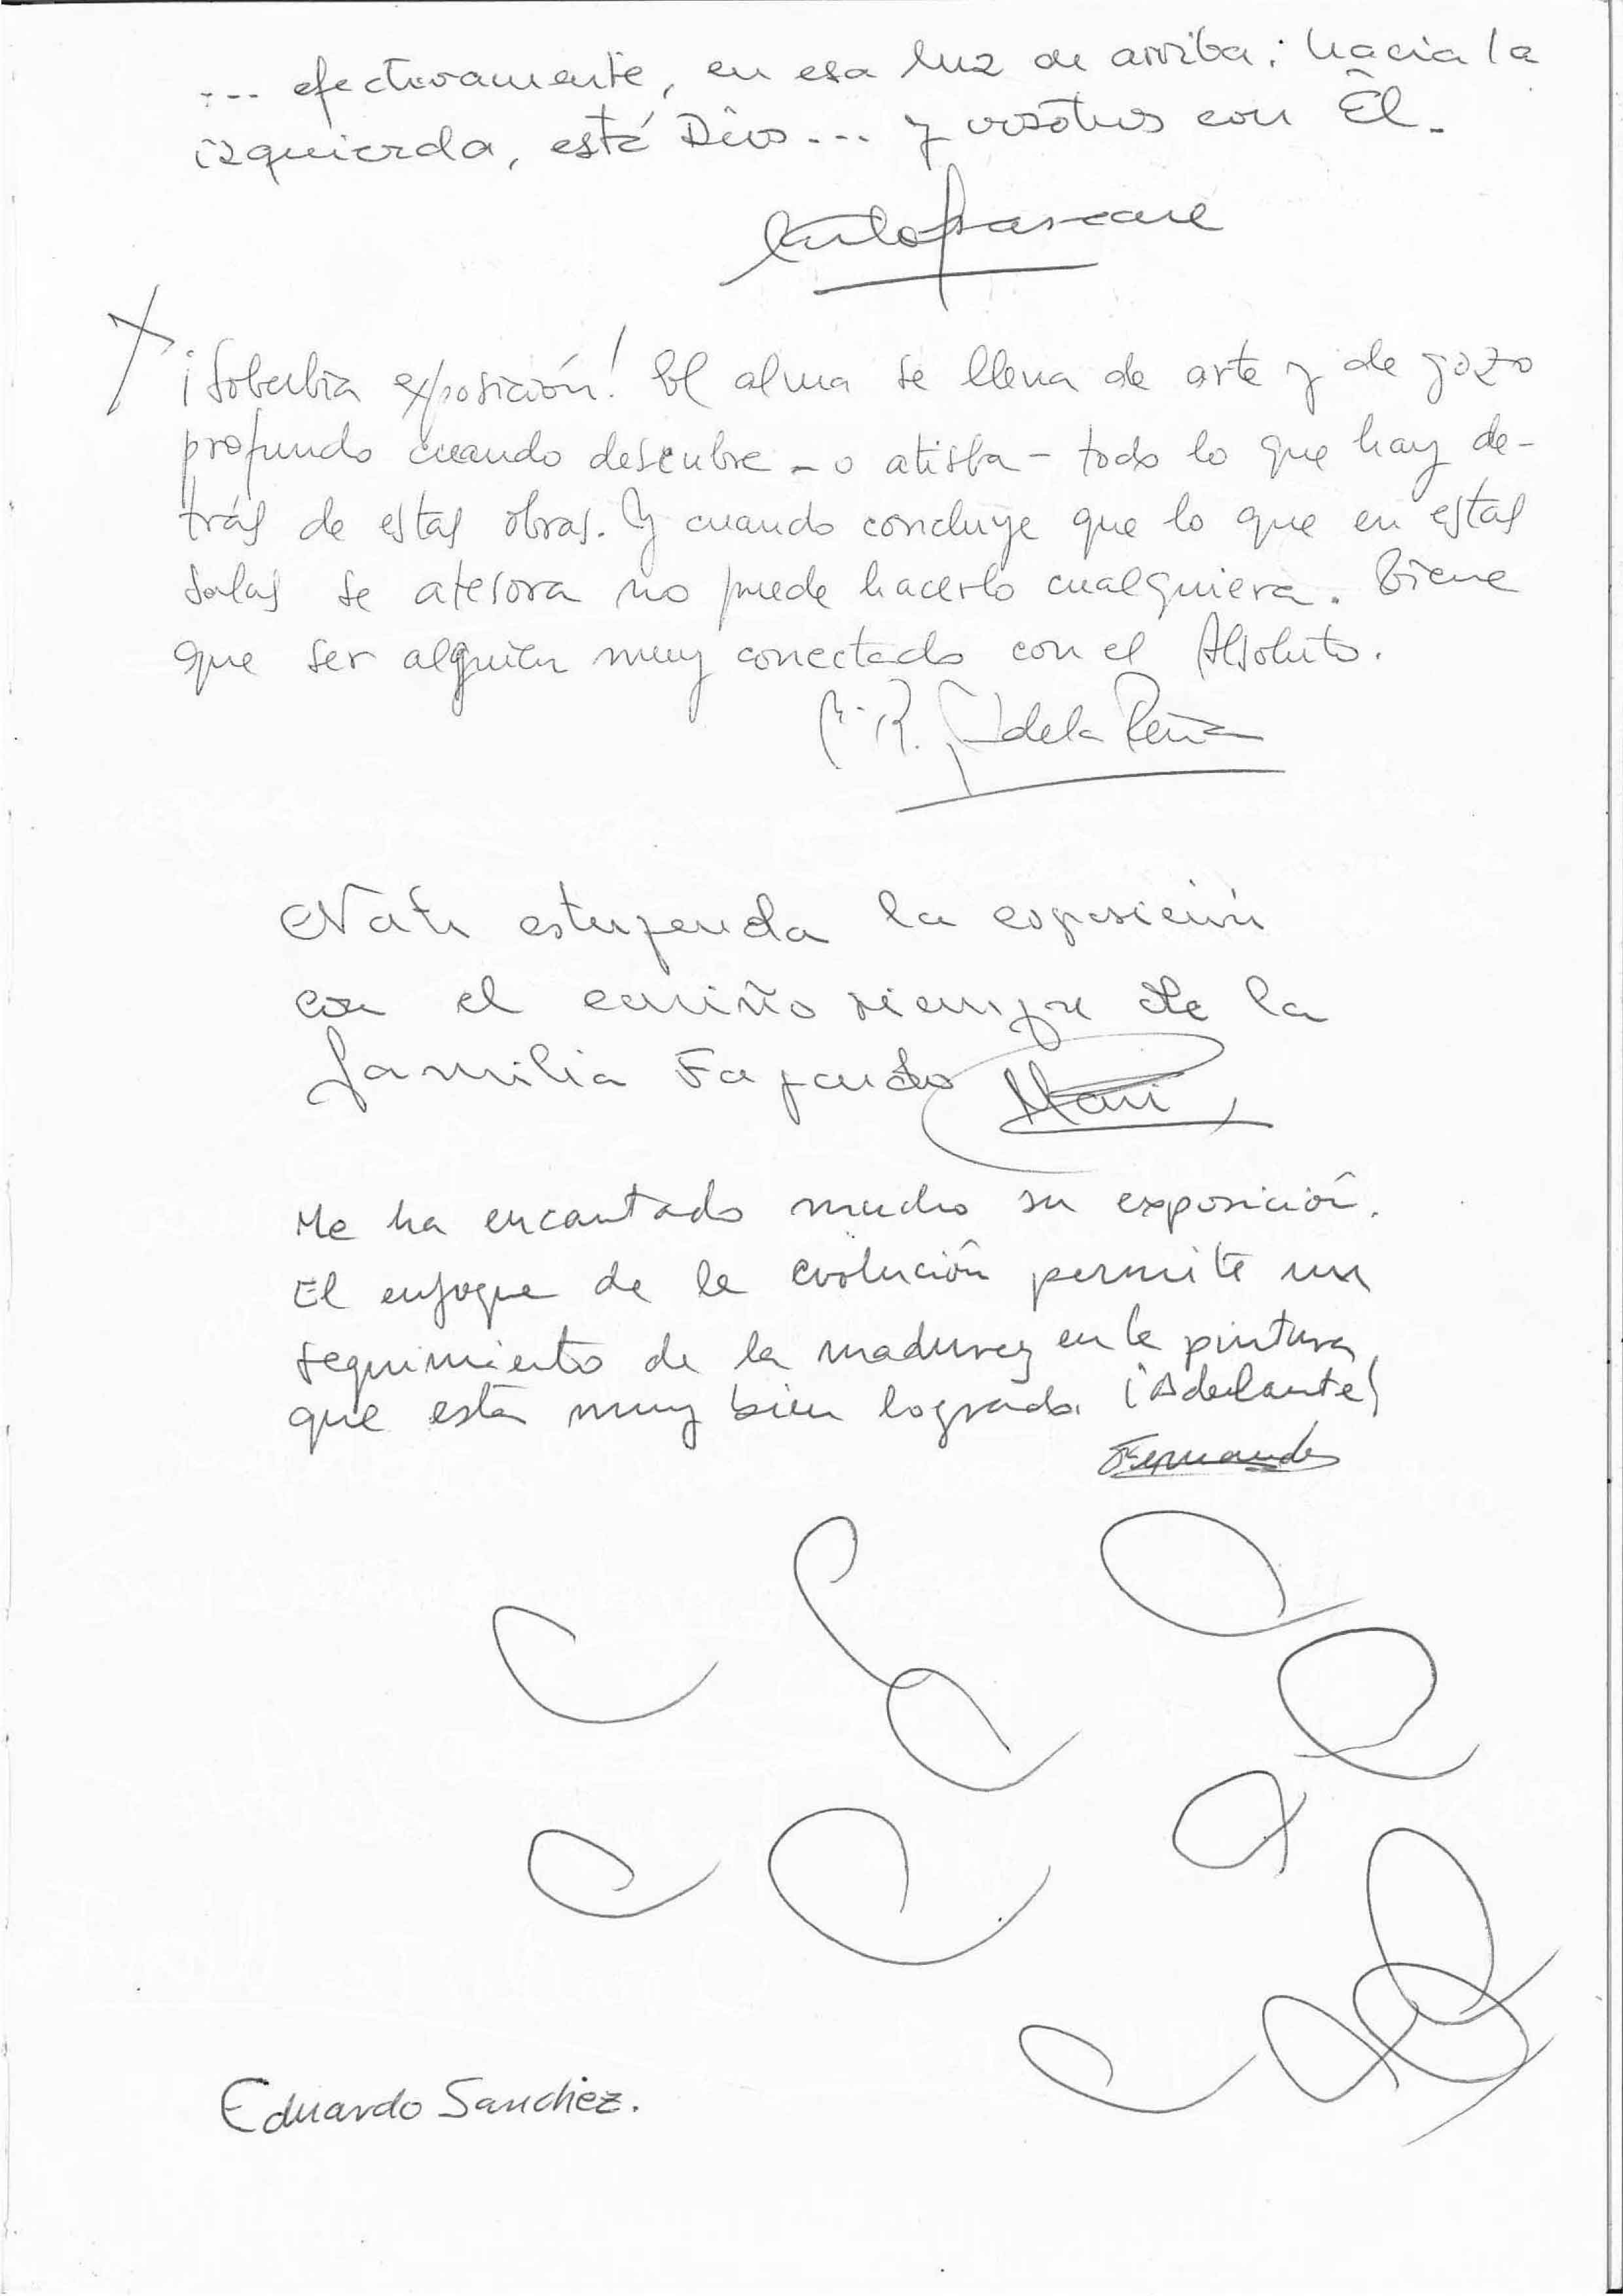 ... efectivamente, en esa luz de arriba; hacia la
izquierda, está Dios... y vosotros con Él.
¡Soberbia exposición! El alma se llena de arte y de gozo
profundo cuando descubre - o atisba - todo lo que hay de-
trás de estas obras. Y cuando concluye que lo que en estas
salas se atesora no puede hacerlo cualquiera. Tiene
que ser alguien muy conectado con el Absoluto.
de la Peña
Nati estupenda la exposición
con el cariño siempre de la
familia Fajardo Mari
Me ha encantado mucho su exposición.
El enfoque de la evolución permite un
seguimiento de la madurez en la pintura
que está muy bien logrado. ¡Adelante!
Fernando
Eduardo Sanchez.